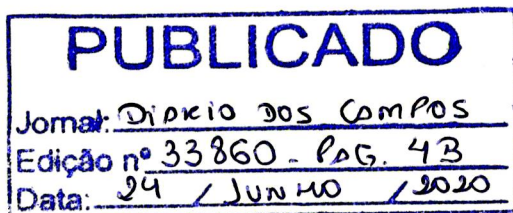 PUBLICADO
Jornal: DIÁRIO DOS CAMPOS
Edição nº 33860 - PÁG. 4B
Data: 24 / JUNHO / 2020